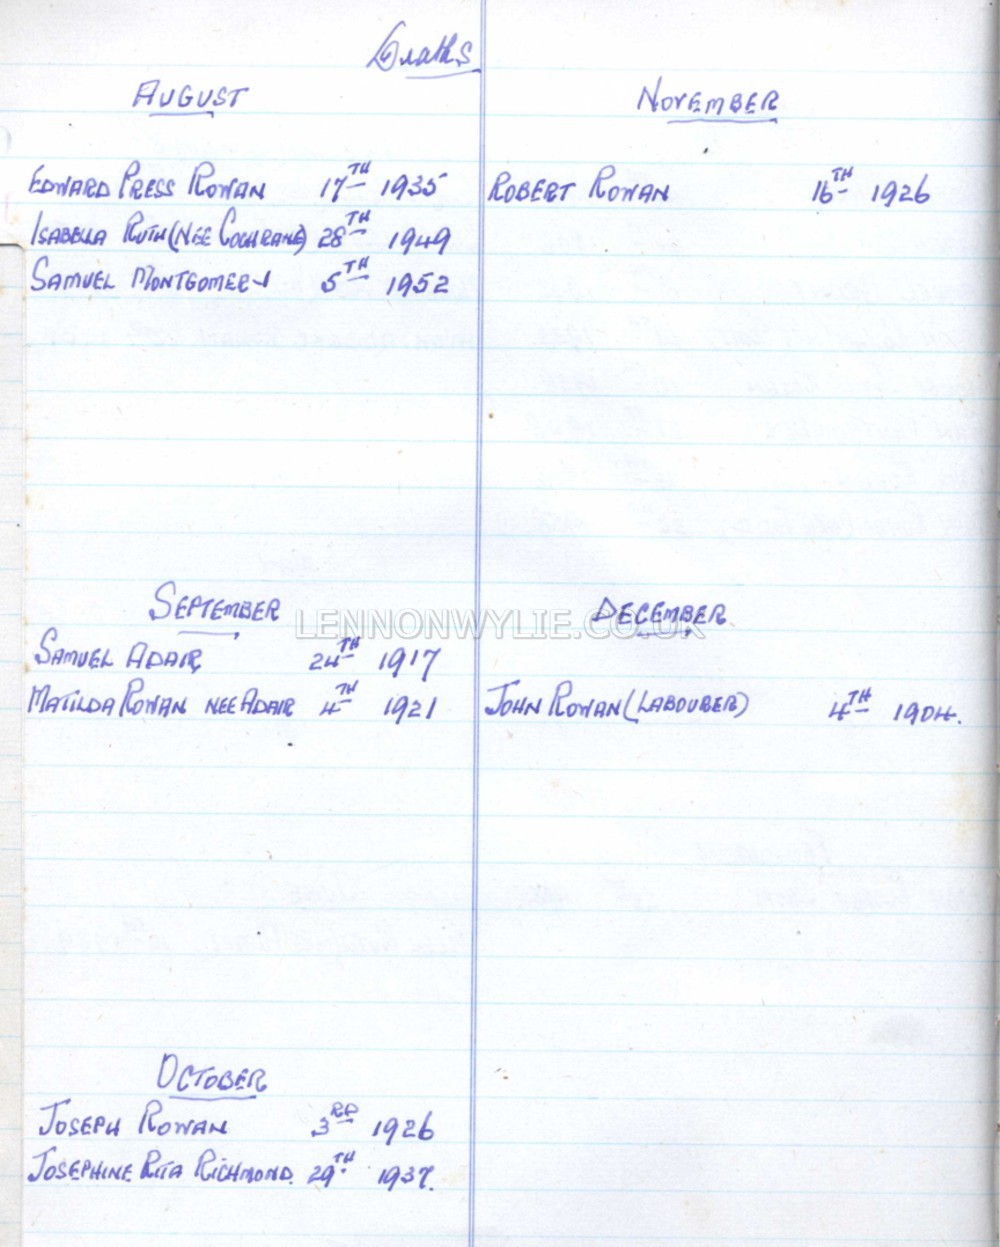 Deaths
AUGUST
EDWARD PRESS ROWAN 17TH 1935
ISABELLA RUTH (NEE COCHRANE) 28TH 1949
SAMUEL MONTGOMERY 5TH 1952
SEPTEMBER
SAMUEL ADAIR 24TH 1917
MATILDA ROWAN NEE ADAIR 4TH 1921
OCTOBER
JOSEPH ROWAN 3RD 1926
JOSEPHINE RITA RICHMOND. 29TH 1937.
NOVEMBER
ROBERT ROWAN 16TH 1926
DECEMBER
JOHN ROWAN (LABOURER) 4TH 1904.
LENNONWYLIE.CO.UK